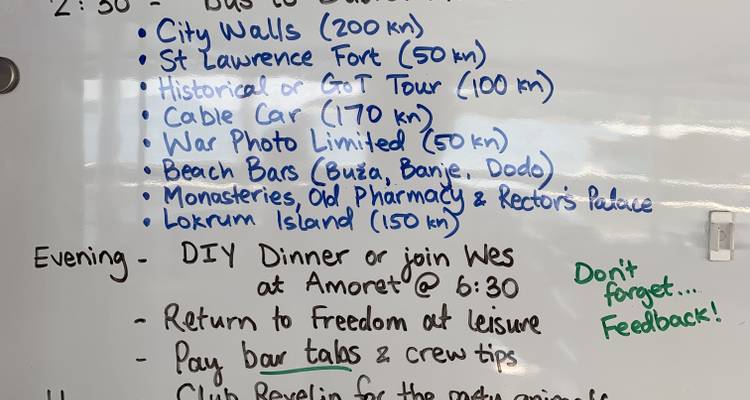 2:30 - Bus to
• City Walls (200 kn)
• St Lawrence Fort (50 kn)
• Historical or GoT Tour (100 kn)
• Cable Car (170 kn)
• War Photo Limited (50 kn)
• Beach Bars (Buža, Banje, Dodo)
• Monasteries, Old Pharmacy & Rector's Palace
• Lokrum Island (150 kn)
Evening - DIY Dinner or join Wes
at Amoret @ 6:30
- Return to Freedom at leisure
- Pay bar tabs & crew tips
Don't
forget...
Feedback!
Club Revelin for the party animals